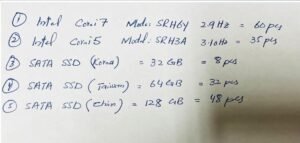 ① Intel Cori 7 Mode: SRH6Y 2.9Hz = 60 pcs
② Intel Cori 5 Modl: SRH3A 3.10Hz = 35 pcs
③ SATA SSD (Korea) = 32 GB = 8 pcs
④ SATA SSD (Taiwan) = 64 GB = 32 pcs
⑤ SATA SSD (China) = 128 GB = 48 pcs